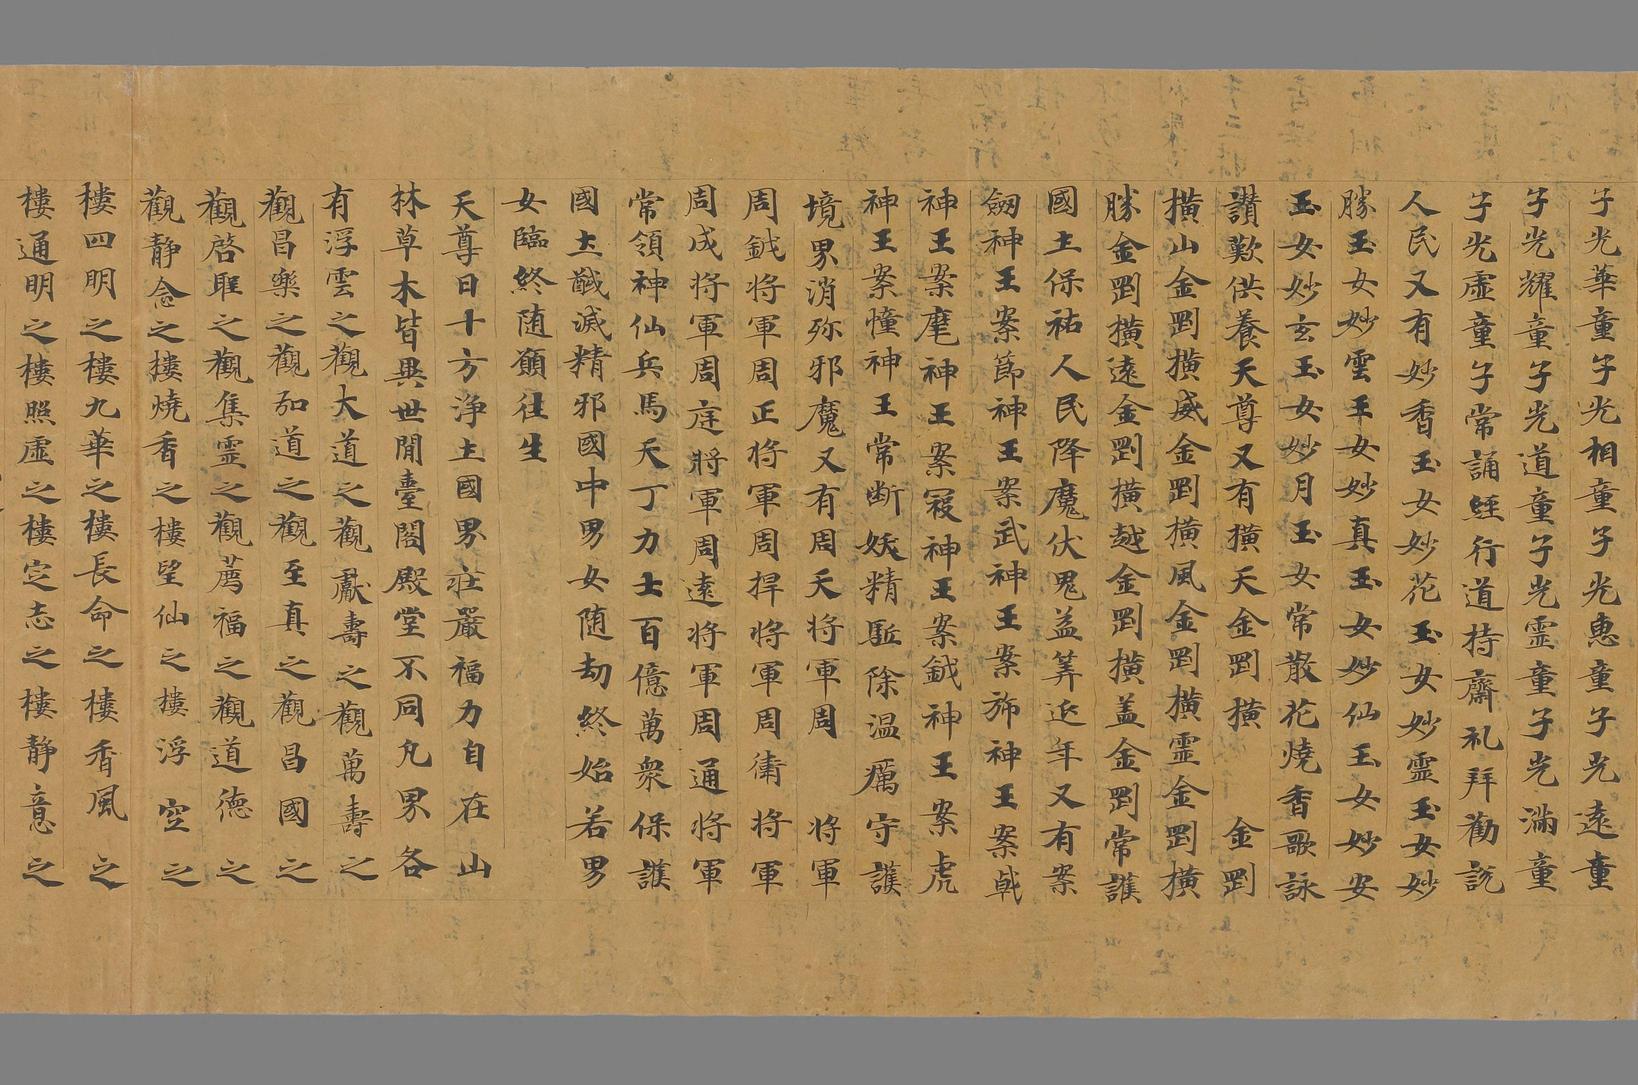 子光華童子光相童子光惠童子光遠童
子光耀童子光道童子光靈童子光滿童
子光虛童子常誦經行道持齋礼拜勸説
人民又有妙香玉女妙花玉女妙靈玉女妙
勝玉女妙雲玉女妙真玉女妙仙玉女妙安
玉女妙玄玉女妙月玉女常散花燒香歌詠
讃歎供養天尊又有擴天金剛擴 金剛
擴山金剛擴威金剛擴風金剛擴靈金剛擴
勝金剛擴遠金剛擴越金剛擴盖金剛常護
國土保祐人民降魔伏鬼益筭延年又有案
劔神王案節神王案武神王案斾神王案戟
神王案麾神王案神王案鉞神王案虎
神王案幢神王常断妖精駈除温癘守護
境界消弥邪魔又有周天將軍周 將軍
周鉞將軍周正將軍周捍將軍周衛將軍
周成將軍周庭將軍周遠將軍周通將軍
常領神仙兵馬天丁力士百億萬衆保護
國土馘滅精邪國中男女随劫終始若男
女臨終随願往生
天尊曰十方浄土國界莊嚴福力自在山
林草木皆異世間臺閣殿堂不同凡界各
有浮雲之觀大道之觀獻壽之觀萬壽之
觀昌樂之觀加道之觀至真之觀昌國之
觀啓聖之觀集靈之觀薦福之觀道德之
觀静念之樓燒香之樓望仙之樓浮空之
樓四明之樓九華之樓長命之樓香風之
樓通明之樓照虛之樓定志之樓静意之